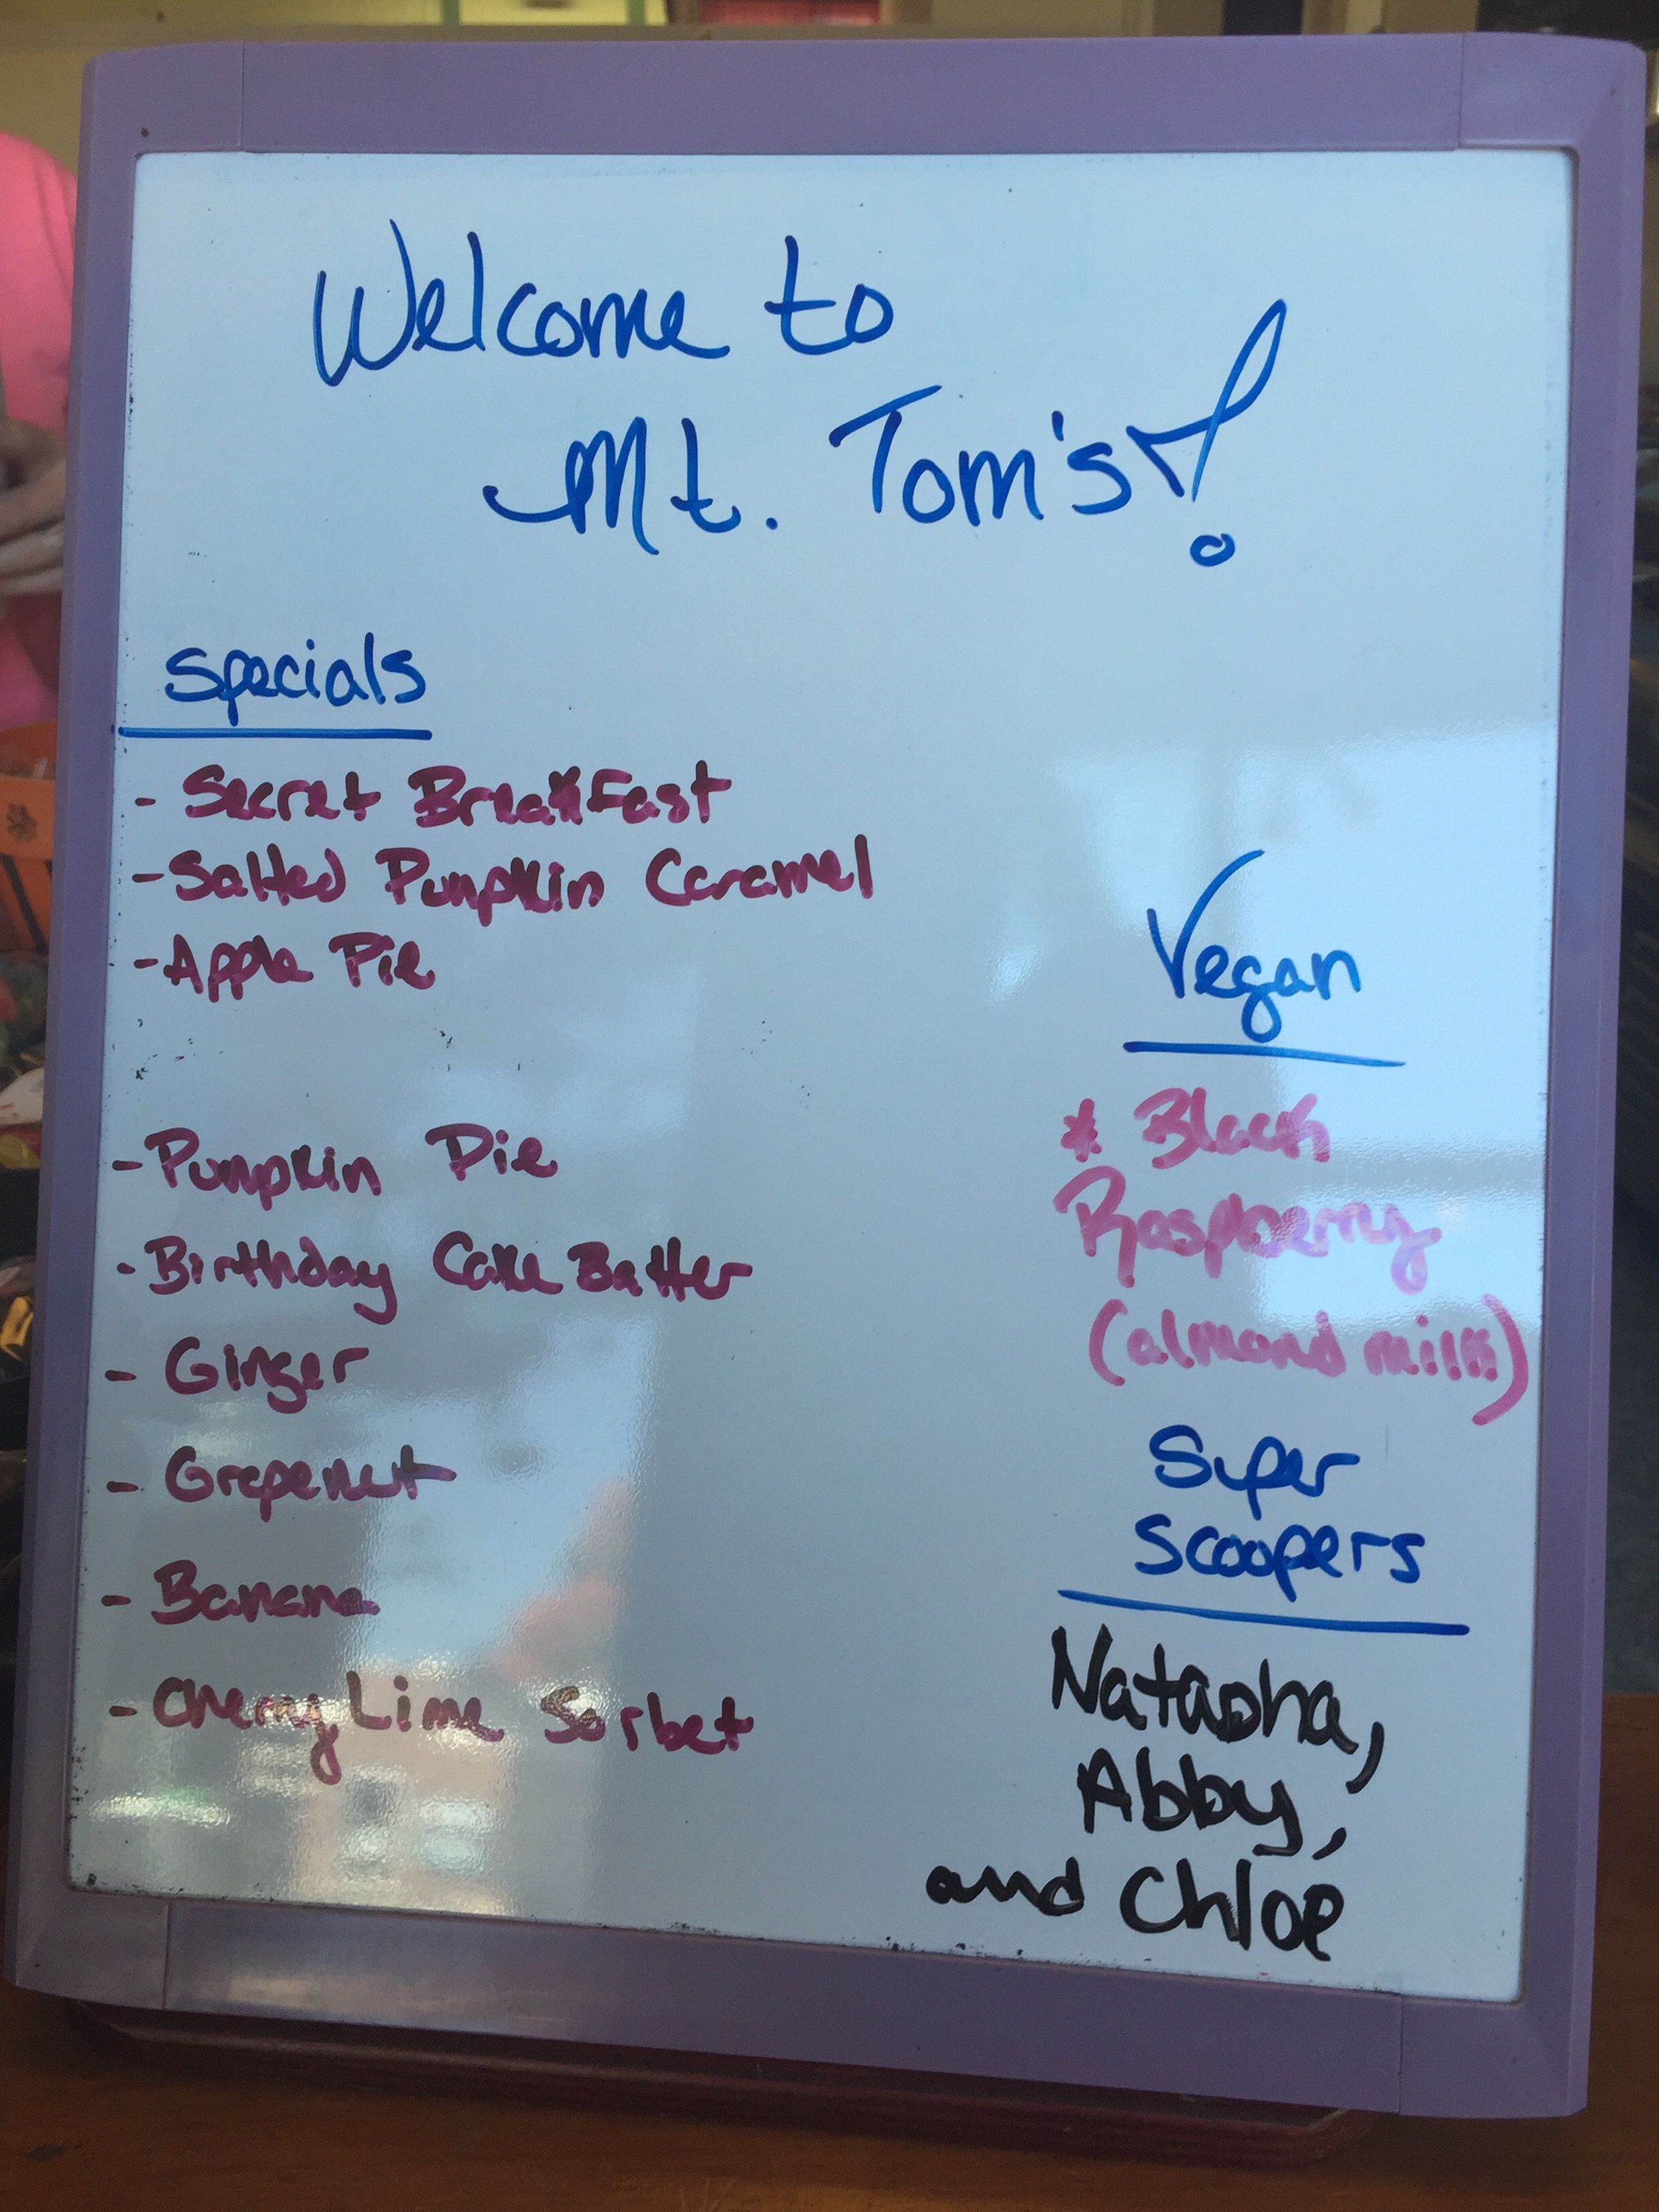 Welcome to
Mt. Tom's!
Specials
- Secret Breakfast
- Salted Pumpkin Caramel
- Apple Pie
- Pumpkin Pie
- Birthday Cake Batter
- Ginger
- Grapenut
- Banana
- Cherry Lime Sorbet
Vegan
* Black
Raspberry
(almond milk)
Super
Scoopers
Natasha,
Abby,
and Chloe